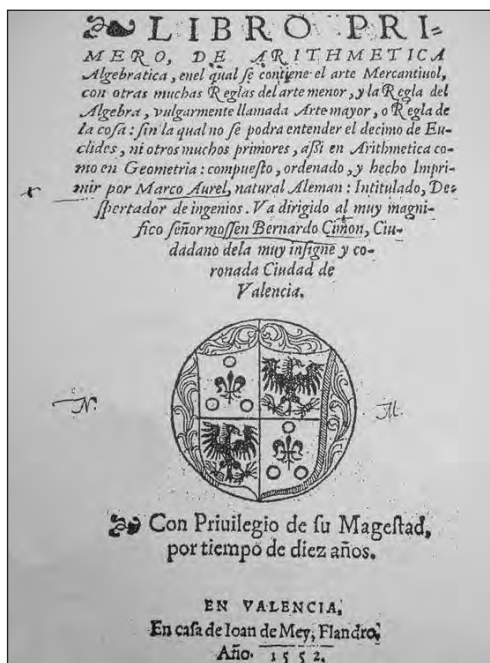 LIBRO PRI-
MERO, DE ARITHMETICA
Algebratica, enel qual se contiene el arte Mercantiuol,
con otras muchas Reglas del arte menor, y la Regla del
Algebra, vulgarmente llamada Arte mayor, o Regla de
la cosa: sin la qual no se podra entender el decimo de Eu-
clides, ni otros muchos primores, assi en Arithmetica co-
mo en Geometria: compuesto, ordenado, y hecho Impri-
mir por Marco Aurel, natural Aleman: Intitulado, Des-
pertador de ingenios. Va dirigido al muy magni-
fico señor mossen Bernardo Cimon, Ciu-
dadano dela muy insigne y co-
ronada Ciudad de
Valencia.
N. M.
Con Priuilegio de su Magestad,
por tiempo de diez años.
EN VALENCIA,
En casa de Ioan de Mey, Flandro.
Año. 1552.